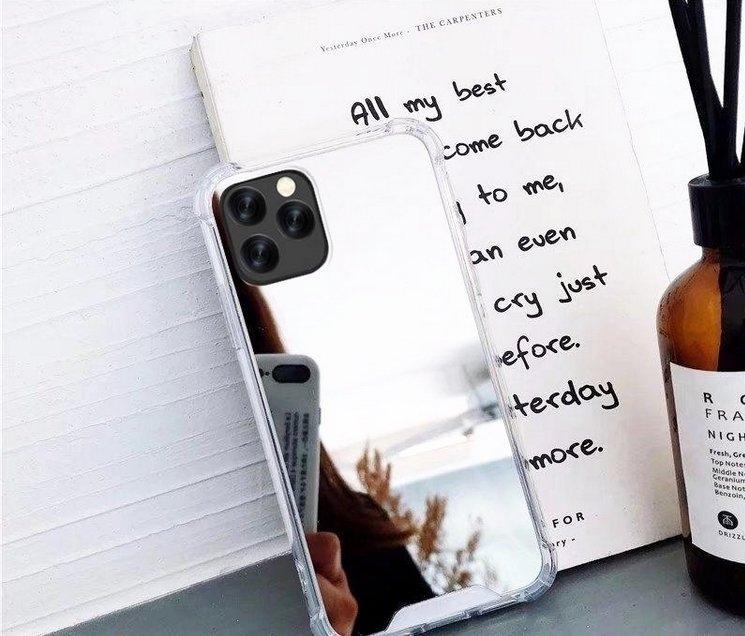 Yesterday Once More - THE CARPENTERS
All my best
come back
to me,
an even
cry just
efore.
terday
more.
FOR
ry -
R
FRA
NIGH
Fresh, Gre
Top Note
Middle N
Geranium
Base Not
Benzoin,
DRIZZL